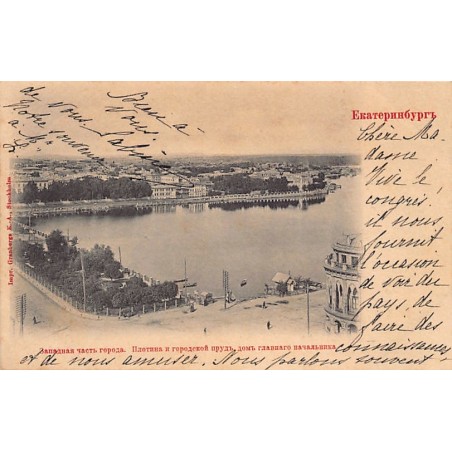 Екатеринбургъ
Chère Ma-
dame
Vive le
congrès!
il nous
fournit
l'occasion
de voir du
pays, de
faire des
connaissances
et de nous amuser. Nous parlons souvent
de Vous
à
Bien à
Vous
Impr. Granbergs K.-A., Stockholm
Западная часть города. Плотина и городской прудъ, домъ главнаго начальника